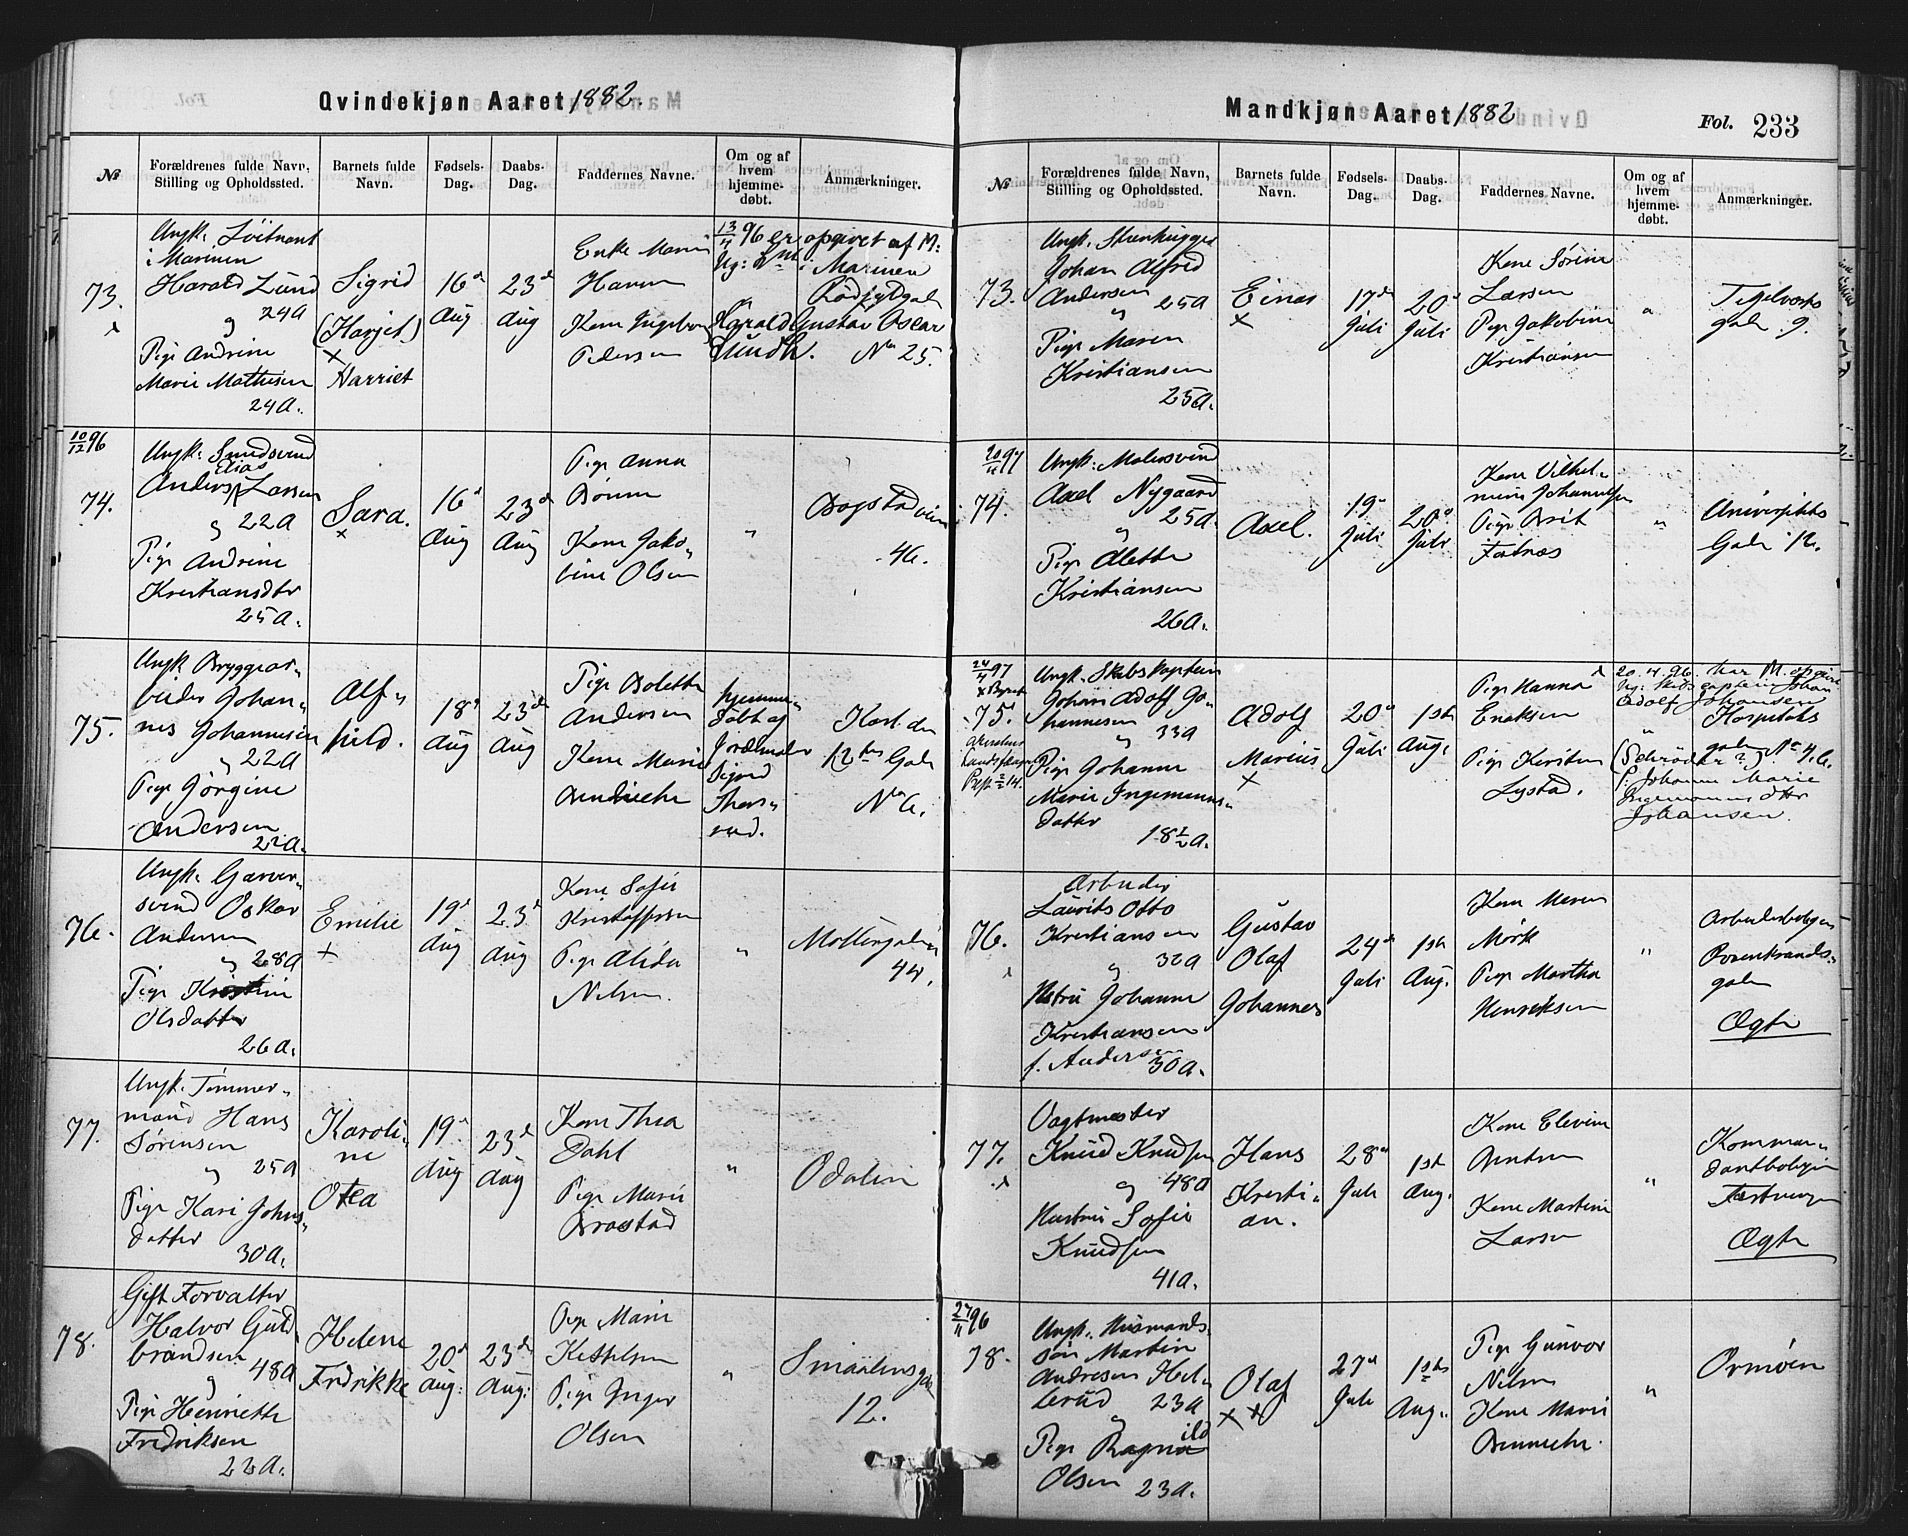 Qvindekjøn Aaret 1882.
№
Forældrenes fulde Navn, Stilling og Opholdssted.
Barnets fulde Navn.
Fødsels-Dag.
Daabs-Dag.
Faddernes Navne.
Om og af hvem hjemme-døbt.
Anmærkninger.
73.
Ungk. Löitnant
i Marinen
Harald Lund
24A
og
Pige Andrine
Marie Mathisen
24A.
Sigrid
(Harjet)
×
Harriet
16d
Aug
23d
Aug
Enke Maria
Hansen
Kone Ingebor
Pedersen
13/4 96 er opgivet af M:
Ug: Lnt i Marinen
Harald Gustav Oscar
Lundh.
Rödfyldgaden
No 25.
10/12 96
74.
Ungk. Smedsvend
Elias
Anders Larsen
og 22A
Pige Andrine
Kristiansdtr
25A.
Sara.
×
16d
Aug
23d
Aug
Pige Anna
Kone Jako-
bine Olsen
"
Bogstadveien
46.
75.
Ungk Bryggear-
beider Johan-
nes Johannesen
og 22A
Pige Jörgine
Andersen
22A.
Alf-
hild.
18d
Aug
23d
Aug
Pige Bolette
Andersen
Kone Marie
Bendiche
hjemme
döbt af
Jordmoder
Sigrid
Thors-
rud.
Karl den
12tes Gade
No 6.
76.
Ungk. Garver-
svend Oskar
Andersen
og 28A
Pige Kristine
Olsdatter
26A.
Emilie
×
19d
Aug
23d
Aug
Kone Sofie
Kristoffersen
Pige Alida
Nilsen.
"
Möllergaden
44.
77.
Ungk. Tömmer-
mand Hans
Sörensen
og 25A
Pige Kari Johns-
datter
30A.
Karoli-
ne
Otea
19d
Aug
23d
Aug
Kone Thea
Dahl
Pige Marie
Brastad
"
Odalen
78.
Gift Forvalter
Halvor Guld-
brandsen
og 48A
Pige Henriette
Fredriksen
22A.
Helene
Fredrikke
20d
Aug:
23d
Aug:
Pige Marie
Ketilsen
Pige Inger
Olsen
"
Smaalensgd
12.
Mandkjøn Aaret 1882
Fol. 233
№
Forældrenes fulde Navn, Stilling og Opholdssted.
Barnets fulde Navn.
Fødsels-Dag.
Daabs-Dag.
Faddernes Navne.
Om og af hvem hjemme-døbt.
Anmærkninger.
73.
Ungk. Stenhugger
Johan Alfred
Andersen 25A
og
Pige Maren
Kristiansen
25A.
Einar
×
17de
Juli
20d
Juli
Kone Sörine
Larsen
Pige Jakobine
Kristiansen
"
Tegelverks
gade 9.
20/11 97
74.
Ungk. Malersvend
Axel Nygaard
25A.
og
Pige Alette
Kristiansen
26A.
Axel.
19d
Juli
20d
Juli
Kone Vilhel-
mine Johannesen
Pige Brit
"
Universitets
Gade 12.
24/4 97
75.
Ungk. Skibskaptein
Johan Adolf Jo-
hannesen
og 33A
Pige Johanne
Marie Ingemanns-
datter
18½A.
Adolf
Marius
×
20d
Juli
1ste
Aug.
Pige Hanna
Eriksen
Pige Kirsten
Lystad.
20.4.96. har M. opgivet
Ug: Skibscaptein Johan
Adolf Johansen
(Schröder?)
P. Johanne Marie
Ingemanns dtr
Johansen.
"
Hospitals
gaden No 4. b.
76.
Arbeider
Laurits Otto
Kristiansen
og 32A
Hstru Johanne
Kristiansen
f. Andersen
30A.
Gustav
Olaf
Johannes
24d
Juli
1ste
Aug.
Kone Maren
Mörk
Pige Martha
Henriksen
"
Arbeiderboligen
Rosenkrands-
gaden
Ægte
77.
Vagtmester
Knud Knudsen
og 48A
Hustru Sofie
Knudsen
41A.
Hans
Kristi-
an.
28d
Juli
1ste
Aug.
Kone Elevine
Berntsen
Kone Martine
Larsen
"
Komman-
dantboligen
Fæstningen
Ægte
27/11 96
78.
Ungk. Husmands-
sön Martin
Andresen Hel-
lerud 23A
og
Pige Ragnild
Olsen 23A.
Olaf
× ×
27d
Juli
1ste
Aug.
Pige Gunvor
Nilsen
Kone Marie
Benneche.
"
Ormöen